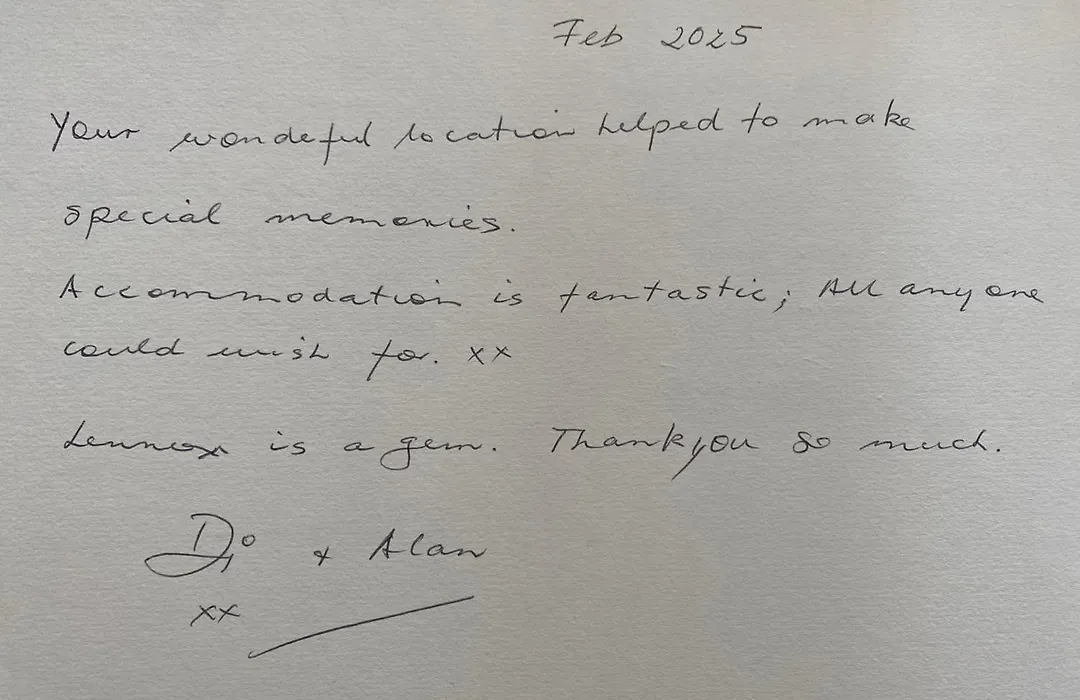 Feb 2025
Your wondeful location helped to make
special memories.
Accommodation is fantastic; All anyone
could wish for. xx
Lennox is a gem. Thankyou so much.
Di & Alan
xx